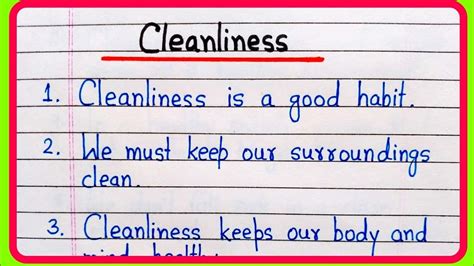 Cleanliness
1. Cleanliness is a good habit.
2. We must keep our surroundings
clean.
3. Cleanliness keeps our body and
mind healthy